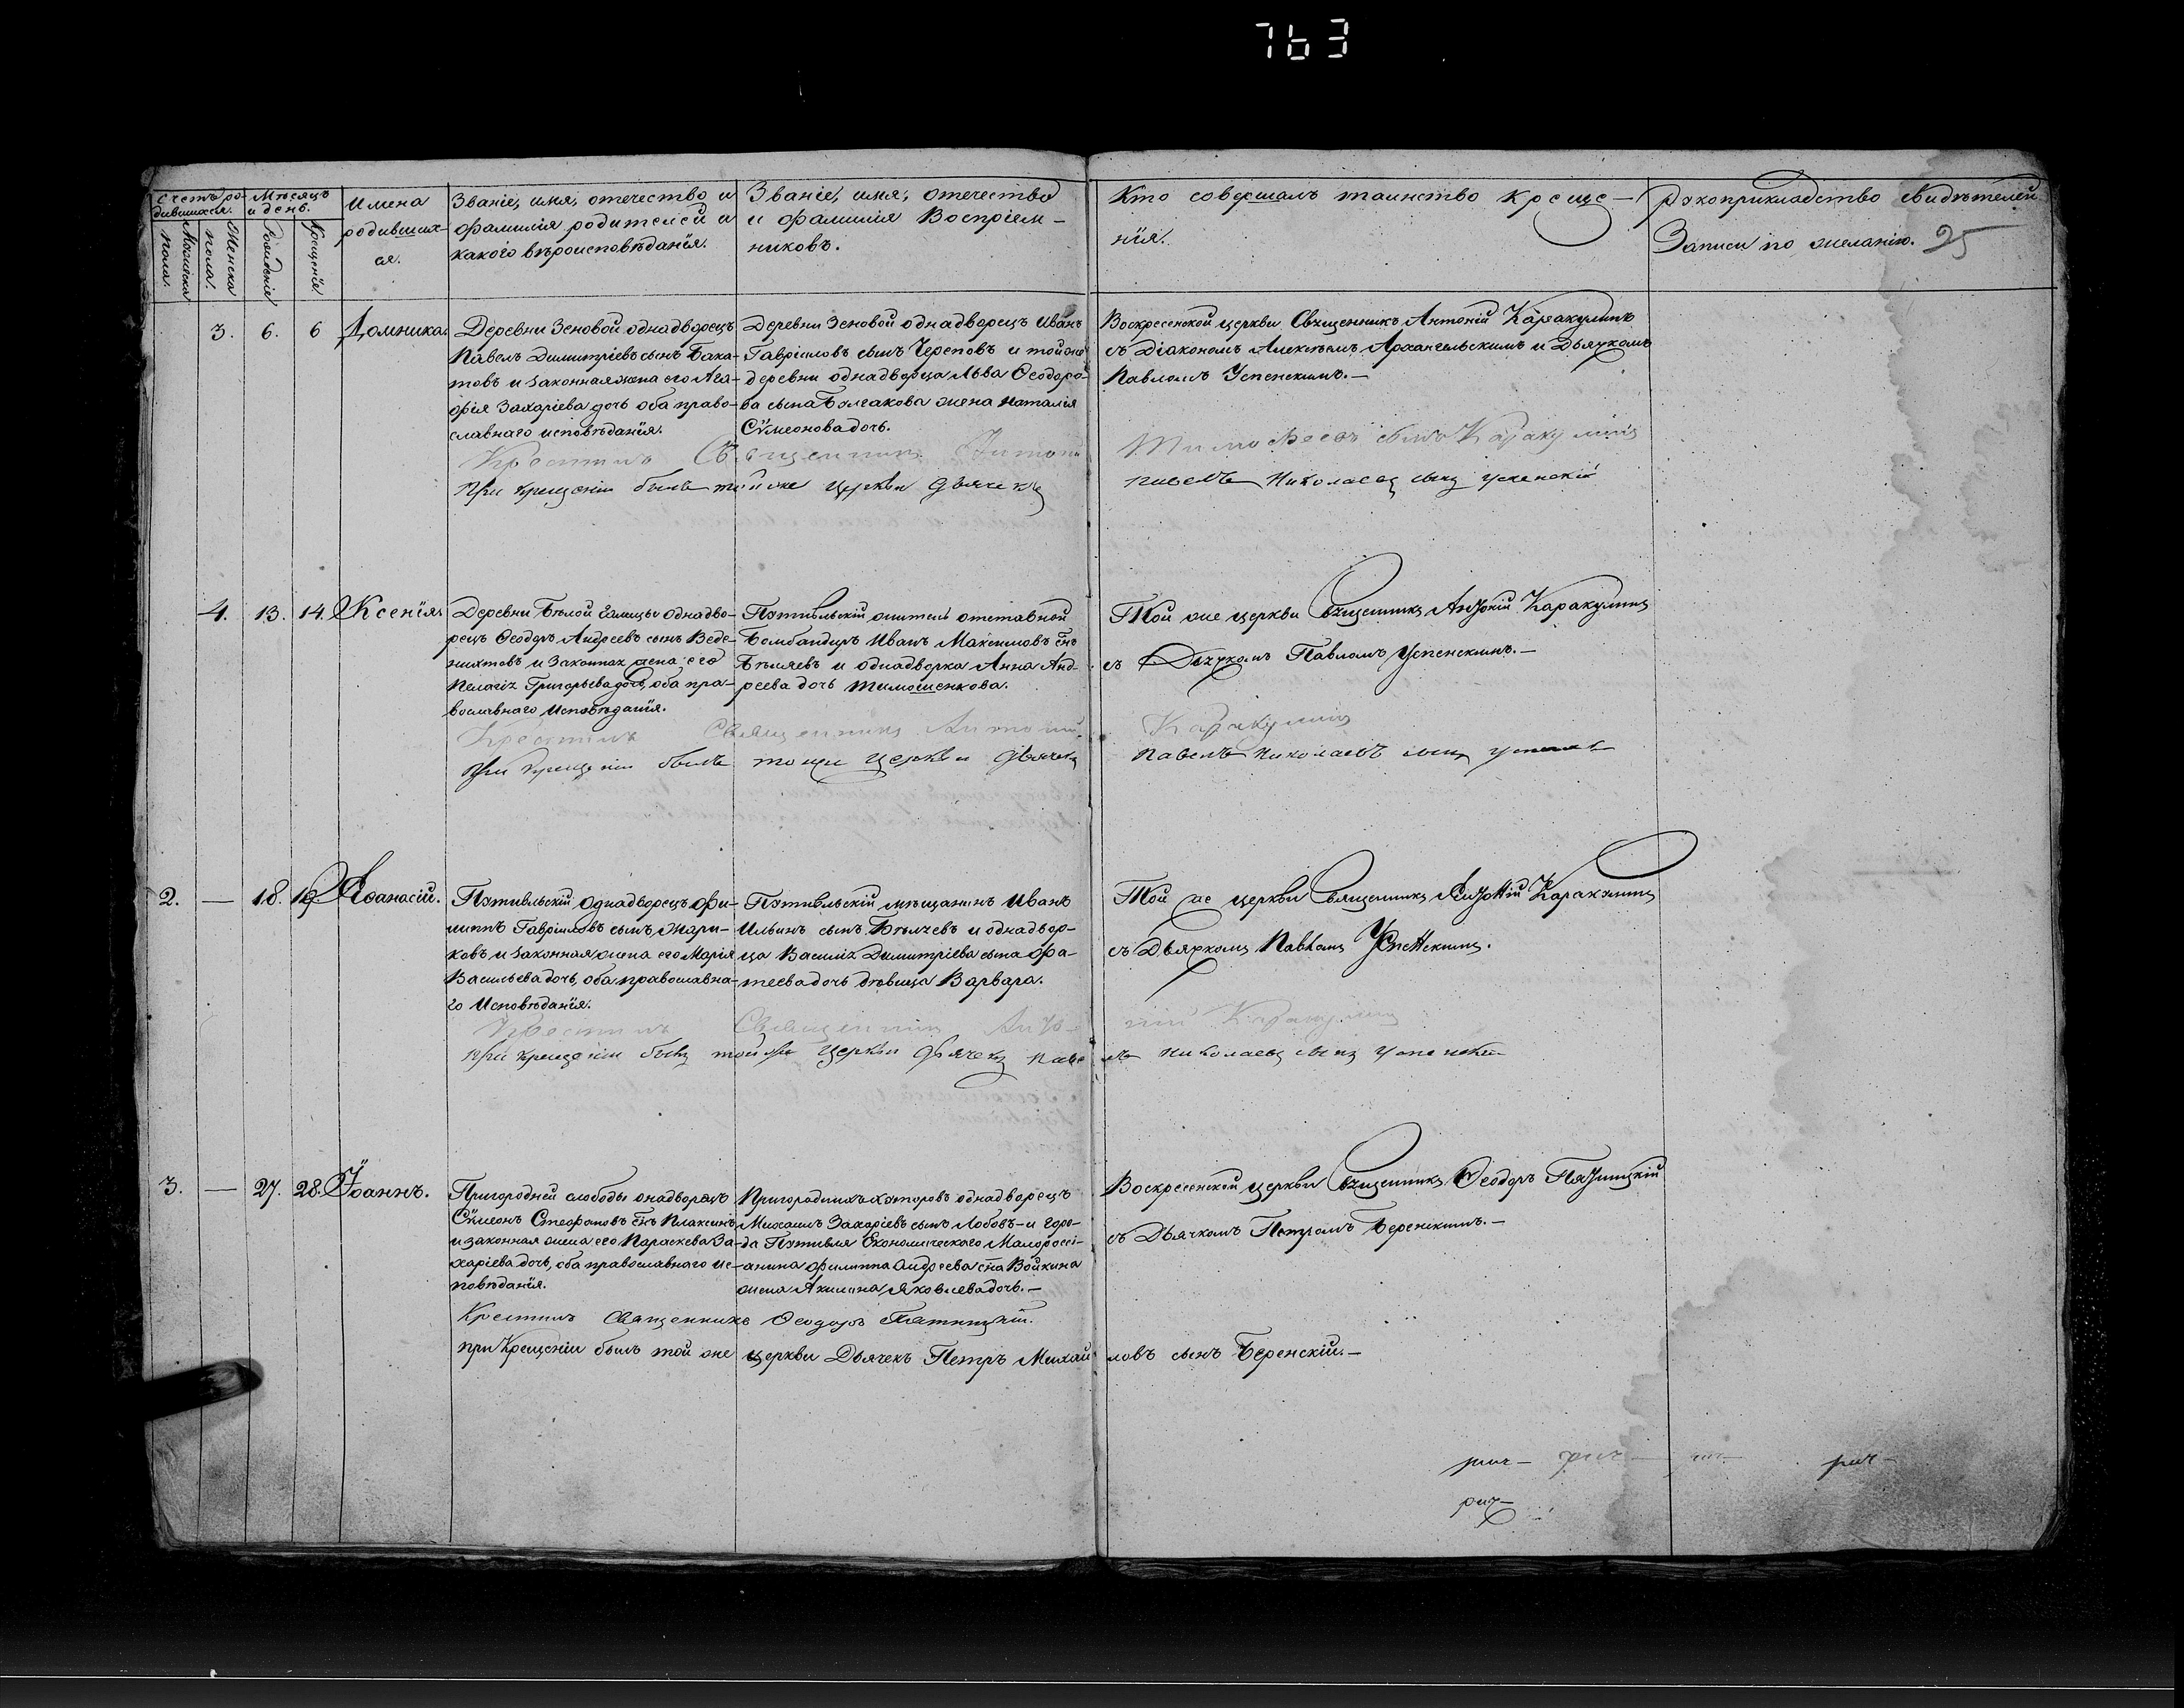 763
Счетъ ро-
дившихся.
Мѣсяцъ
и день.
Имена
родивших-
ся.
Званіе, имя, отечество и
фамилія родителей и
какого вѣроисповѣданія.
Званіе, имя, отечество
и фамилія Воспріем-
никовъ.
Кто совершалъ таинство креще-
нія.
Рукоприкладство свидѣтелей
Записи по желанію. 25
Мужеска
пола.
Женска
пола.
Рожденіе
Крещеніе
3. 6. 6 Домника.
Деревни Зеновой однадворецъ
Павелъ Димитріевъ сынъ Бака-
товъ и законная жена его Ага-
фія Захаріева дочь оба право-
славнаго исповѣданія.
Деревни Зеновой однадворецъ Иванъ
Гавріиловъ сынъ Череповъ и той же
деревни однадворца Льва Ѳеодоро-
ва сына Болгакова жена Наталія
Сѵмеонова дочь.
Воскресенской церкви Священникъ Антоній Каракулинъ
съ Діакономъ Алексѣемъ Архангельскимъ и Дьячкомъ
Павломъ Успенскимъ.—
Крестилъ Священникъ Антоній
Каракулинъ
При крещеніи былъ той же церкви дьячекъ
Павелъ Николаевъ сынъ Успенскій
4. 13. 14. Ксенія.
Деревни Бѣлой однадво-
рецъ Ѳеодоръ Андреевъ сынъ Веде-
нихтовъ и Законная жена его
Пелагія Григорьева дочь, оба пра-
вославнаго Исповѣданія.
Путивльскій житель отставной
Бомбандиръ Иванъ Максимовъ снъ
Бѣляевъ и однадворка Анна Анд-
реева дочь Тимошенкова.
Той же церкви Священникъ Антоній Каракулинъ
съ Дьячкомъ Павломъ Успенскимъ.—
Крестилъ Священникъ Антоній
Каракулинъ
При крещеніи былъ тойже церкви дьячекъ
Павелъ Николаевъ сынъ
2. — 18. 19. Аѳанасій.
Путивльскій однадворецъ Фи-
липпъ Гавріиловъ сынъ Жари-
ковъ и законная жена его Марія
Васильева дочь, оба православна-
го Исповѣданія.
Путивльскій мѣщанинъ Иванъ
Ильинъ сынъ Бѣлчевъ и однадвор-
ца Василія Димитріева сына Фа-
теева дочь дѣвица Варвара.
Той же церкви Священникъ Антоній Каракулинъ
съ Дьячкомъ Павломъ Успенскимъ.
Крестилъ Священникъ Анто-
ній Каракулинъ
При крещеніи былъ той же церкви дьячекъ Паве
лъ Николаевъ сынъ Успенскій
3. — 27. 28. Іоаннъ.
Пригородней слободы онадворецъ
Сѵмеонъ Стефановъ снъ Плаксинъ
и законная жена его Параскева За-
харіева дочь, оба православнаго ис-
повѣданія.
Пригородныхъ хуторовъ однадворецъ
Михаилъ Захаріевъ сынъ Лобовъ — и горо-
да Путивля Економическаго Малороссі-
анина Филиппа Андреева сна Войкина
жена Акилина Яковлева дочь.—
Воскресенской церкви Священникъ Ѳеодоръ Пятницкій
съ Дьячкомъ Петромъ Беренскимъ.—
Крестилъ Священникъ Ѳеодоръ Пятницкій.
При Крещеніи былъ той же церкви Дьячекъ Петръ Михаи
ловъ сынъ Беренскій.—